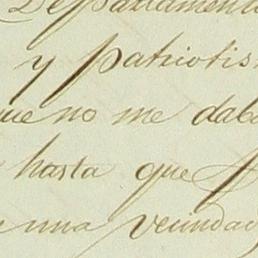 Departamento
y patriotis
ue no me daba
hasta que
una vecindad